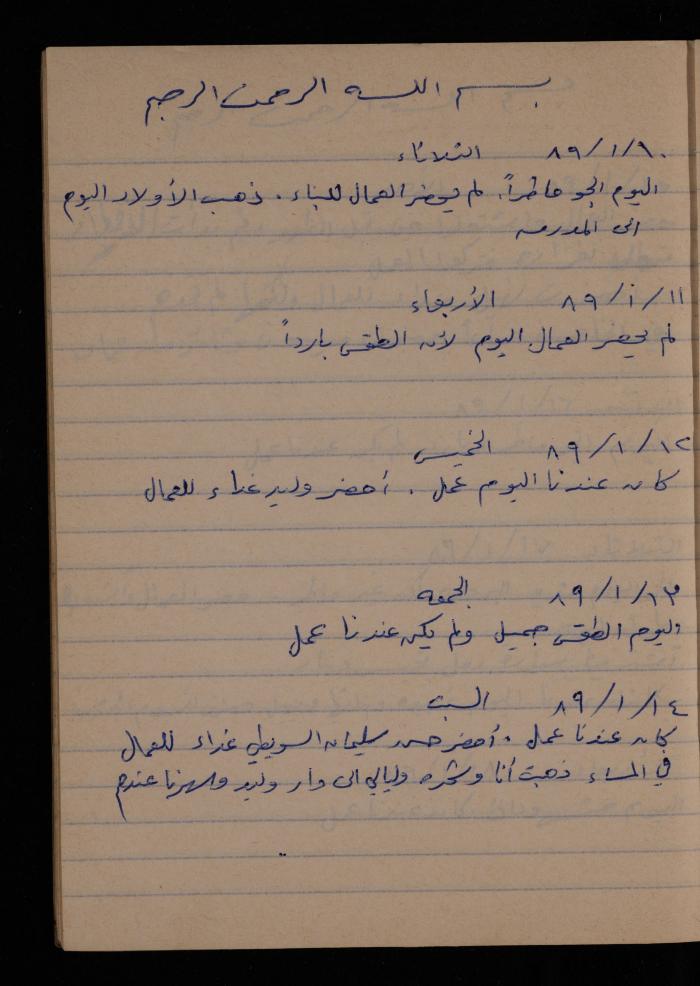 بسم الله الرحمن الرحيم
٨٩/١/١٠ الثلاثاء
اليوم الجو ماطراً. لم يحضر العمال للبناء. ذهب الأولاد اليوم
الى المدرسه
٨٩/١/١١ الأربعاء
لم يحضر العمال اليوم لأن الطقس بارداً
٨٩/١/١٢ الخميس
كان عندنا اليوم عمل. أحضر وليد غداء للعمال
٨٩/١/١٣ الجمعه
اليوم الطقس جميل ولم يكن عندنا عمل
٨٩/١/١٤ السبت
كان عندنا عمل. أحضر حسن سليمان السويطي غداء للعمال
في المساء ذهبت أنا وليالي الى دار وليد وسهرنا عندهم